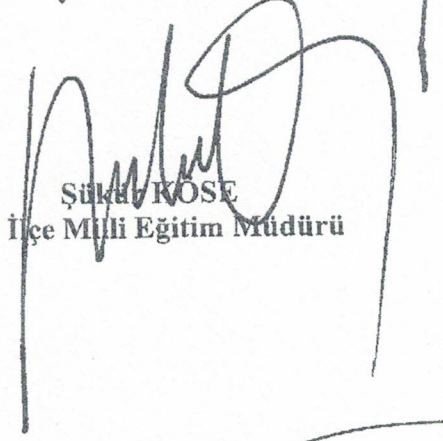 Şükür KÖSE
İlçe Milli Eğitim Müdürü